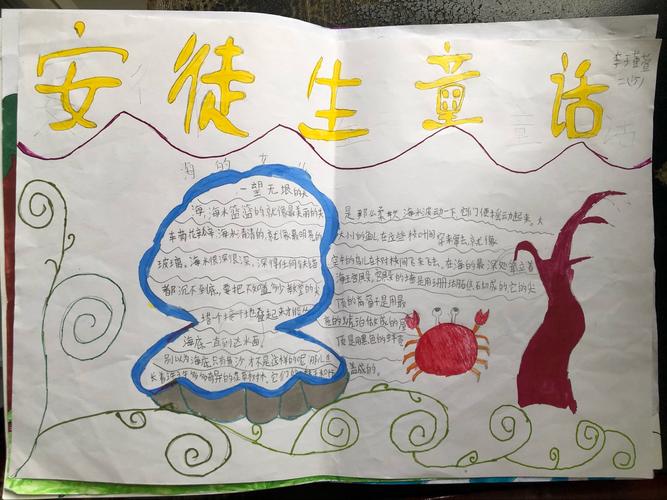 安徒生童话
李瑾萱
二(5)
海的女儿
一望无垠的大
海,海水蓝蓝的就像最美丽的矢
车菊花,海水清的,就像最明亮的
玻璃。海水很深很深,深得任何铁锚
都沉不到底。要把不知道多少教堂的尖
塔一个接一个地叠起来才能从
海底一直到达水面。
别以为海底只有黄沙,才不是这样的呢!那儿生
长着许多奇异的花草树木,它们的
是那么柔软,海水波动一下,它们便摇动起来。大
大小小的鱼儿在这些枝叶间穿来穿去,就像
空中的鸟儿在树枝间飞来飞去。在海的最深处矗立着
海王宫殿,宫殿的墙是用珊瑚石砌成的,它的尖
顶的高窗是用最
亮的琥珀做成的,屋
顶是用黑色的蚌壳
盖成的。